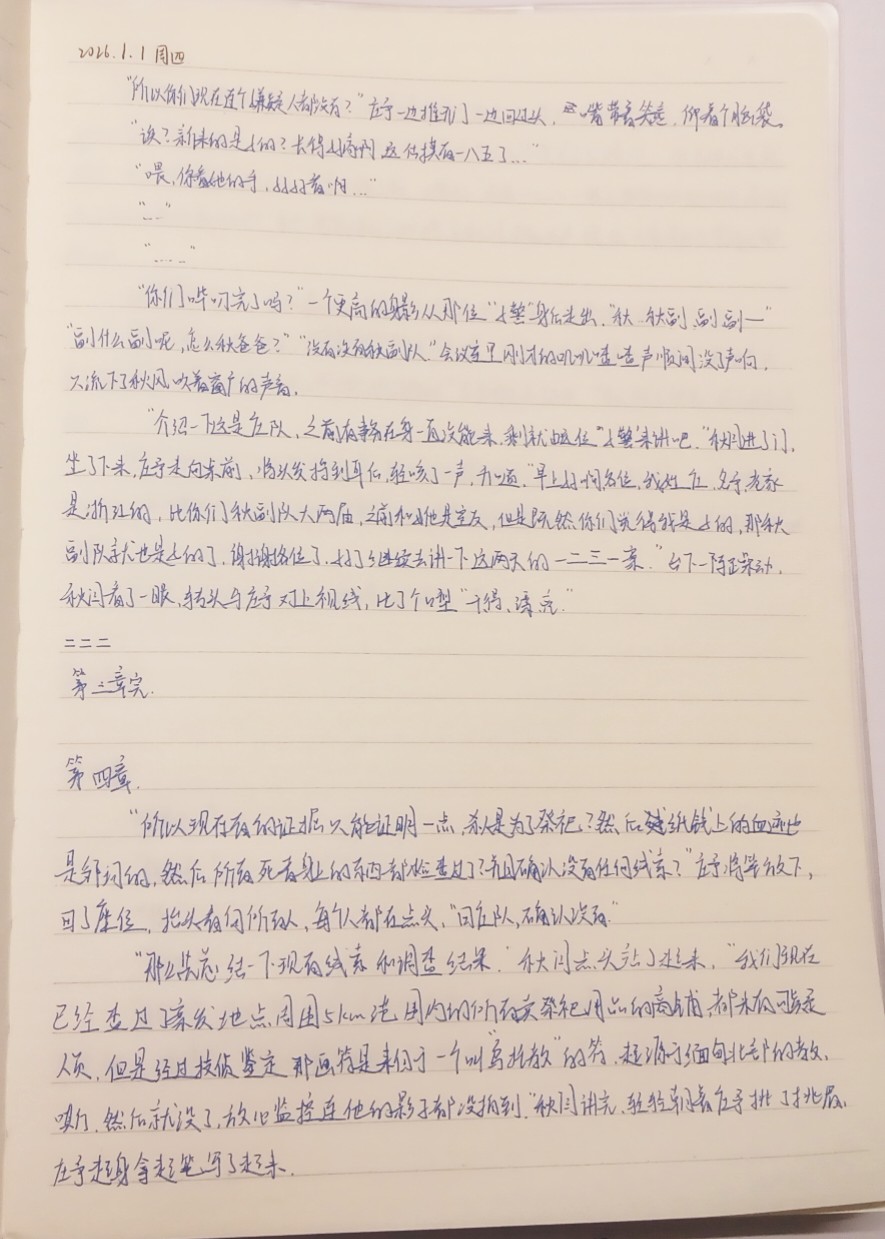 2026.1.1 周四
"所以你们现在连个嫌疑人都没有?"庄予一边推开门一边回过头,嘴带着笑意,仰着个脑袋。
"诶?新来的是女的?长得好高啊,这估摸有一八五了..."
"喂,你看他的手,好好看啊..."
"……"
"……"
"你们哔叨完了吗?"一个更高的身影从那位"女警"身后走出,"秋..秋副副副—"
"副什么副呢,怎么秋爸爸?""没有没有秋副队."会议室里刚才的叽叽喳喳声瞬间没了声响,
只流下了秋风吹着窗户的声音。
"介绍一下这是庄队,之前有事务在身一直没能来,剩就由这位"女警"来讲吧."秋闫进了门,
坐了下来,庄予走向桌前,将头发捋到耳后,轻咳了一声,开口道,"早上好啊各位,我姓庄,名予,老家
是浙江的,比你们秋副队大两届,之前和他是室友,但是既然你们觉得我是女的,那秋
副队就也是女的了,谢谢各位了,好了继续去讲一下这两天的一二三一案."台下一阵骚动,
秋闫看了一眼,转头与庄予对上视线,比了个口型"干得,漂亮."
=====
第三章完.
第四章.
"所以现存有的证据只能证明一点,杀人是为了祭祀?然后纸钱上的血迹也
是外词的,然后所有死者身上的东西都检查过了?并且确认没有任何线索?"庄予将笔放下,
回了座位,抬头看向所有人,每个人都在点头,"回庄队,确认没有."
"那么总结一下现有线索和调查结果."秋闫点头站了起来,"我们现在
已经查过了案发地点周围5km范围内的所有卖祭祀用品的商铺,都未有可疑
人员,但是经过技侦鉴定那画符是来自于一个叫"教"的符,起源于缅甸北部的教,
然后就没了,放心监控连他的影子都没拍到."秋闫讲完,轻轻朝着庄予挑了挑眉,
庄予起身拿起笔写了起来.